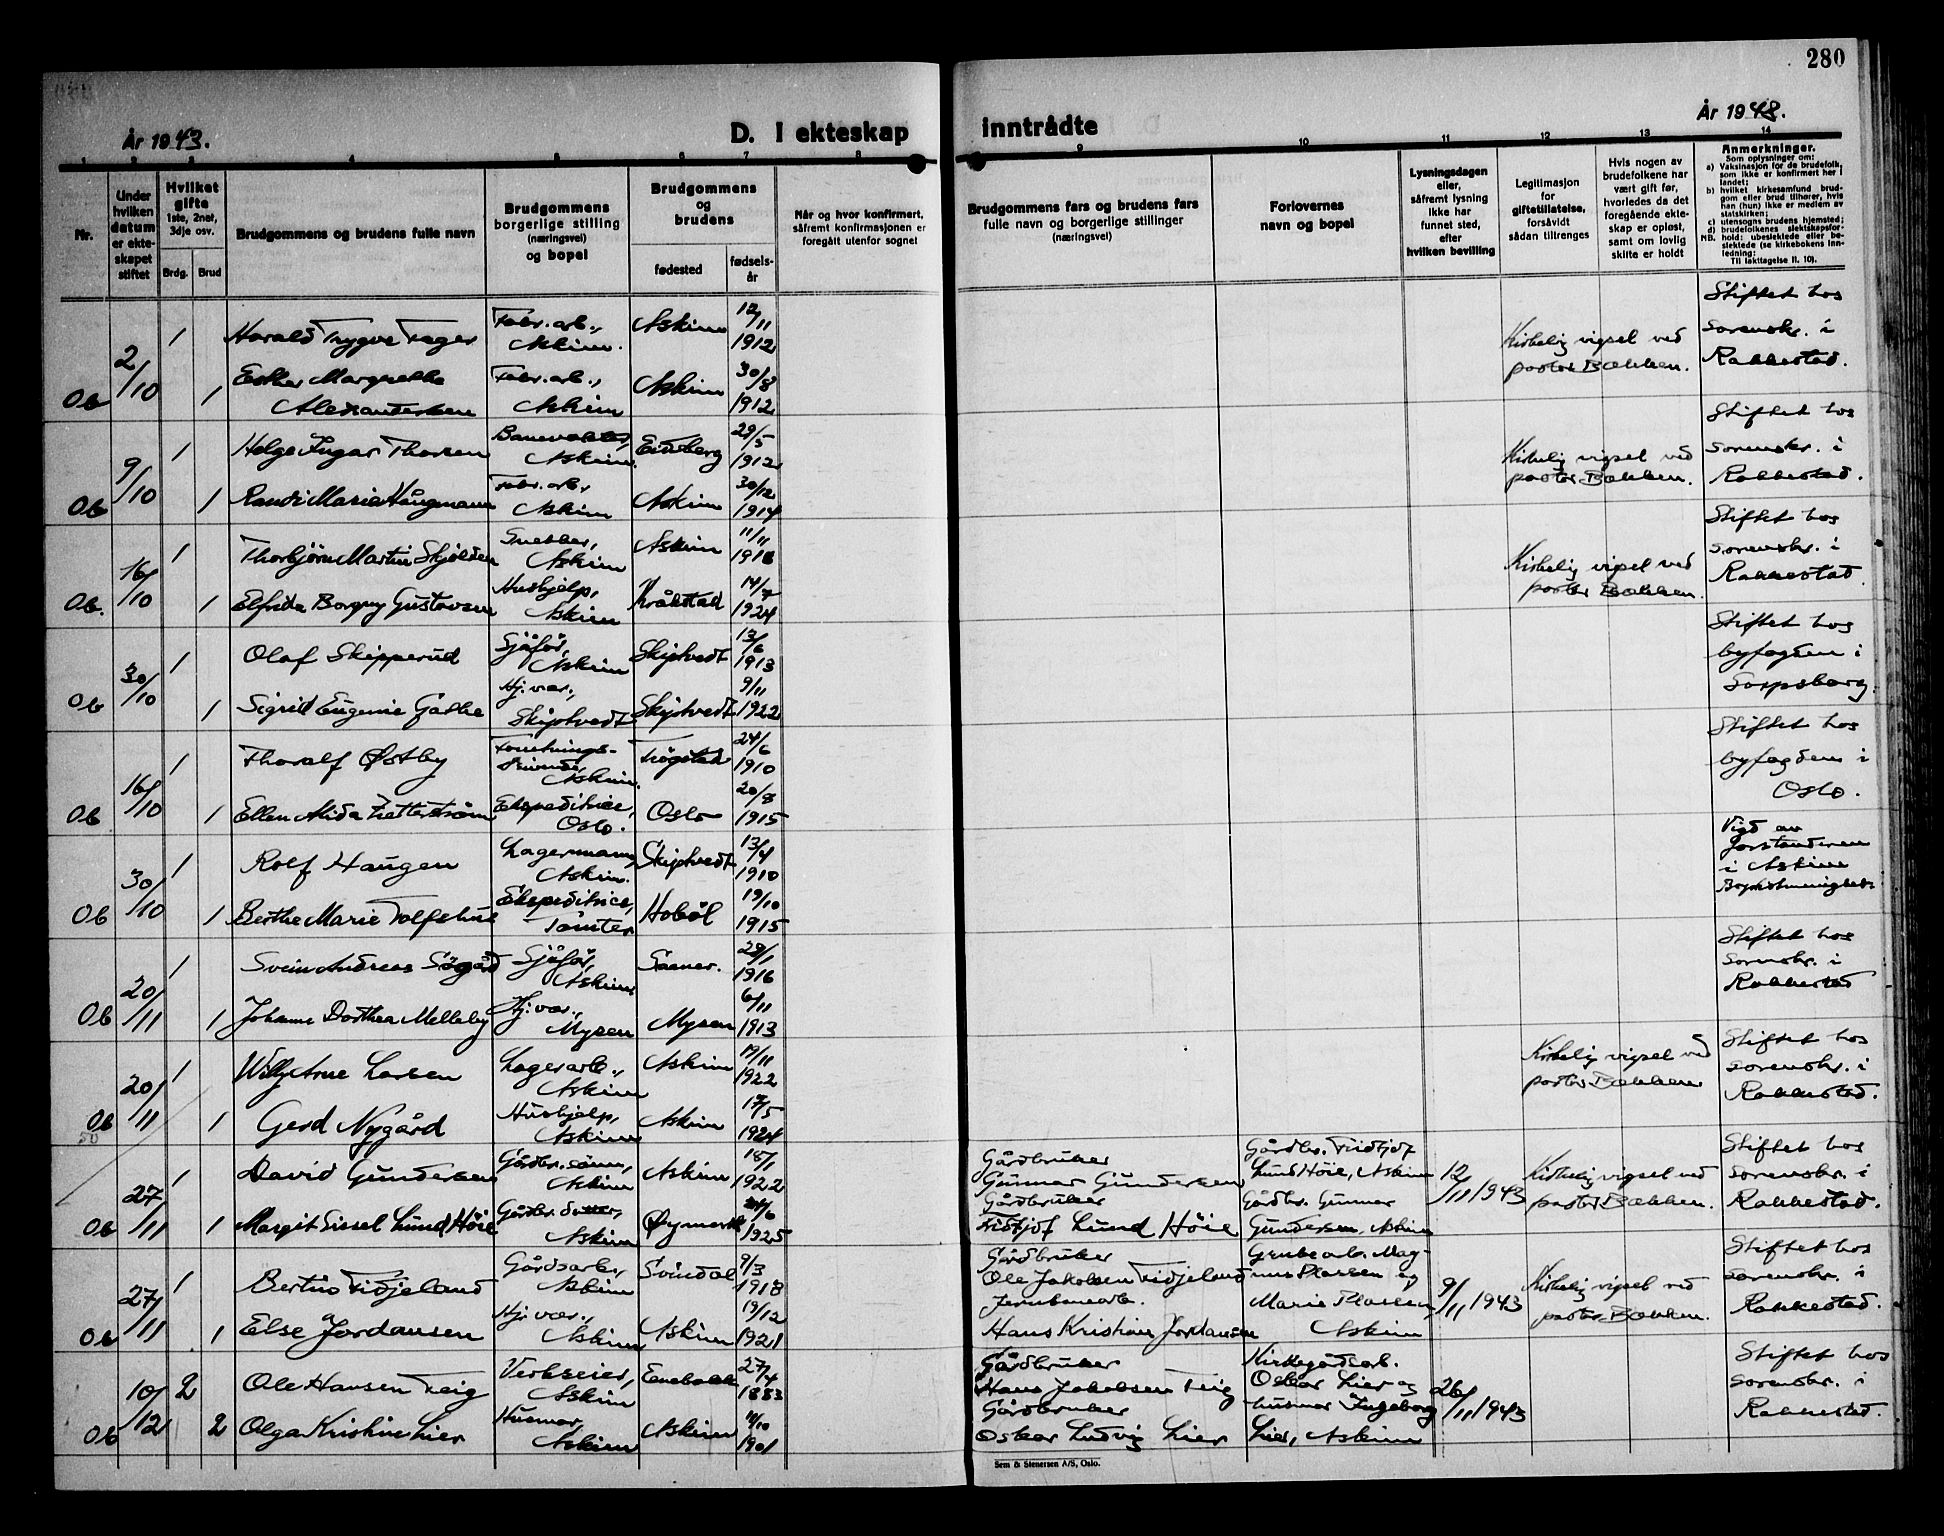 280
År 1943.
D. I ekteskap
inntrådte
År 1943.
1 2 3 4 5 6 7 8
9 10 11 12 13 14
Nr.
Under hvilken datum er ekteskapet stiftet
Hvilket gifte
1ste, 2net, 3dje osv.
Brdg. Brud
Brudgommens og brudens fulle navn
Brudgommens borgerlige stilling (næringsvei) og bopel
Brudgommens og brudens
fødested
fødselsår
Når og hvor konfirmert, såfremt konfirmasjonen er foregått utenfor sognet
Brudgommens fars og brudens fars fulle navn og borgerlige stillinger (næringsvei)
Forlovernes navn og bopel
Lysningsdagen eller, såfremt lysning ikke har funnet sted, efter hvilken bevilling
Legitimasjon for giftetillatelse, forsåvidt sådan tiltrenges
Hvis nogen av brudefolkene har vært gift før, hvorledes da det foregående ekteskap er opløst, samt om lovlig skifte er holdt
Anmerkninger.
Som oplysninger om:
a) Vaksinasjon for de brudefolk, som ikke er konfirmert her i landet;
b) hvilket kirkesamfund brudgom eller brud tilhører, hvis han (hun) ikke er medlem av statskirken;
c) utensogns brudens hjemsted;
d) brudefolkenes slektskapsforhold: ubeslektede eller beslektede (se kirkebokens innledning:
NB. Til iakttagelse II. 10).
Ob 2/10 1 Harald Trygve Fager Fabr.arb., Askim. Askim 12/11 1912
1 Esther Margrethe Alexandersen Fabr.arb., Askim Askim 30/8 1912
Kirkelig vigsel ved pastor Bækken.
Stiftet hos sorenskr. i Rakkestad.
Ob 9/10 1 Helge Ingar Thorsen Banevokter, Askim. Eidsberg 29/5 1912
1 Randi Maria Haugmann Fabr.arb., Askim Askim 30/12 1914
Kirkelig vigsel ved pastor Bækken.
Stiftet hos sorenskr. i Rakkestad.
Ob. 16/10 1 Thorbjørn Martin Skjolden Snekker, Askim Askim 11/11
1 Elfrida Borgny Gustavsen Hushjelp, Askim Kråkstad 14/7 1924
Kirkelig vigsel ved pastor Bækken.
Stiftet hos sorenskr. i Rakkestad.
Ob 30/10 1 Olaf Skipperud Sjåfør, Askim Skiptvedt 13/6 1913
1 Sigrid Eugenie Hj.vær., Skiptvedt Skiptvedt 9/11 1922
Stiftet hos byfogden i Sarpsborg.
Ob 16/10 1 Thoralf Østby Askim. Trøgstad 24/6 1910
1 Ellen Alida Zetterstrøm Ekspeditrice, Oslo. Oslo 20/8 1915
Stiftet hos byfogden i Oslo.
Ob 30/10 1 Rolf Haugen Lagermann, Askim. Skiptvedt 13/4 1910
1 Berthe Marie Ekspeditrice, Tomter Hobøl 19/10 1915
Vigd av forstanderen i Askim
Ob 20/11 1 Svein Andreas Søgård Sjåfør, Askim Saaner. 28/1 1916
1 Johanne Dorthea Melleby Hj.vær., Mysen Mysen 6/11 1913
Stiftet hos sorenskr. i Rakkestad
Ob 20/11 1 Willy Arne Larsen Lagerarb., Askim Askim 19/11 1922
50 1 Gerd Nygård Hushjelp, Askim Askim 17/5 1924
Kirkelig vigsel ved pastor Bækken
Stiftet hos sorenskr. i Rakkestad.
Ob 27/11 1 David Gundersen Gårdbr.sønn, Askim Askim 18/1 1922
1 Margit Sissel Lund Høie Gårdbr.datter, Askim Øymark 1925
Gårdbruker Gunnar Gundersen
Gårdbruker Fridtjof Lund Høie
Gårdbr. Fridtjof Lund Høie, Askim
Gårdbr. Gunnar Gundersen, Askim
12/11 1943
Kirkelig vigsel ved pastor Bækken.
Stiftet hos sorenskr. i Rakkestad.
Ob 27/11 1 Bertins Fidjeland Gårdsarb., Askim Svindal 9/3 1918
1 Else Jordansen Hj.vær., Askim Askim 19/12 1921
Gårdbruker Ole Jakobsen Fidjeland
Jernbanearb. Hans Kristian Jordansen
Grubearb. Magnus Plassen og Marie Plassen, Askim
9/11 1943
Kirkelig vigsel ved pastor Bækken.
Stiftet hos sorenskr. i Rakkestad.
Ob 10/12 2 Ole Hansen Teig Verkseier, Askim Enebakk 27/4 1883
2 Olga Kristine Lier Husmor, Askim Askim 1901
Gårdbruker Hans Jakobsen Teig
Gårdbruker Oskar Ludvig Lier
Kirkegårdsarb. Oskar Lier og husmor Ingeborg Lier, Askim
26/11 1943
Stiftet hos sorenskr. i Rakkestad.
Sem & Stenersen A/S, Oslo.